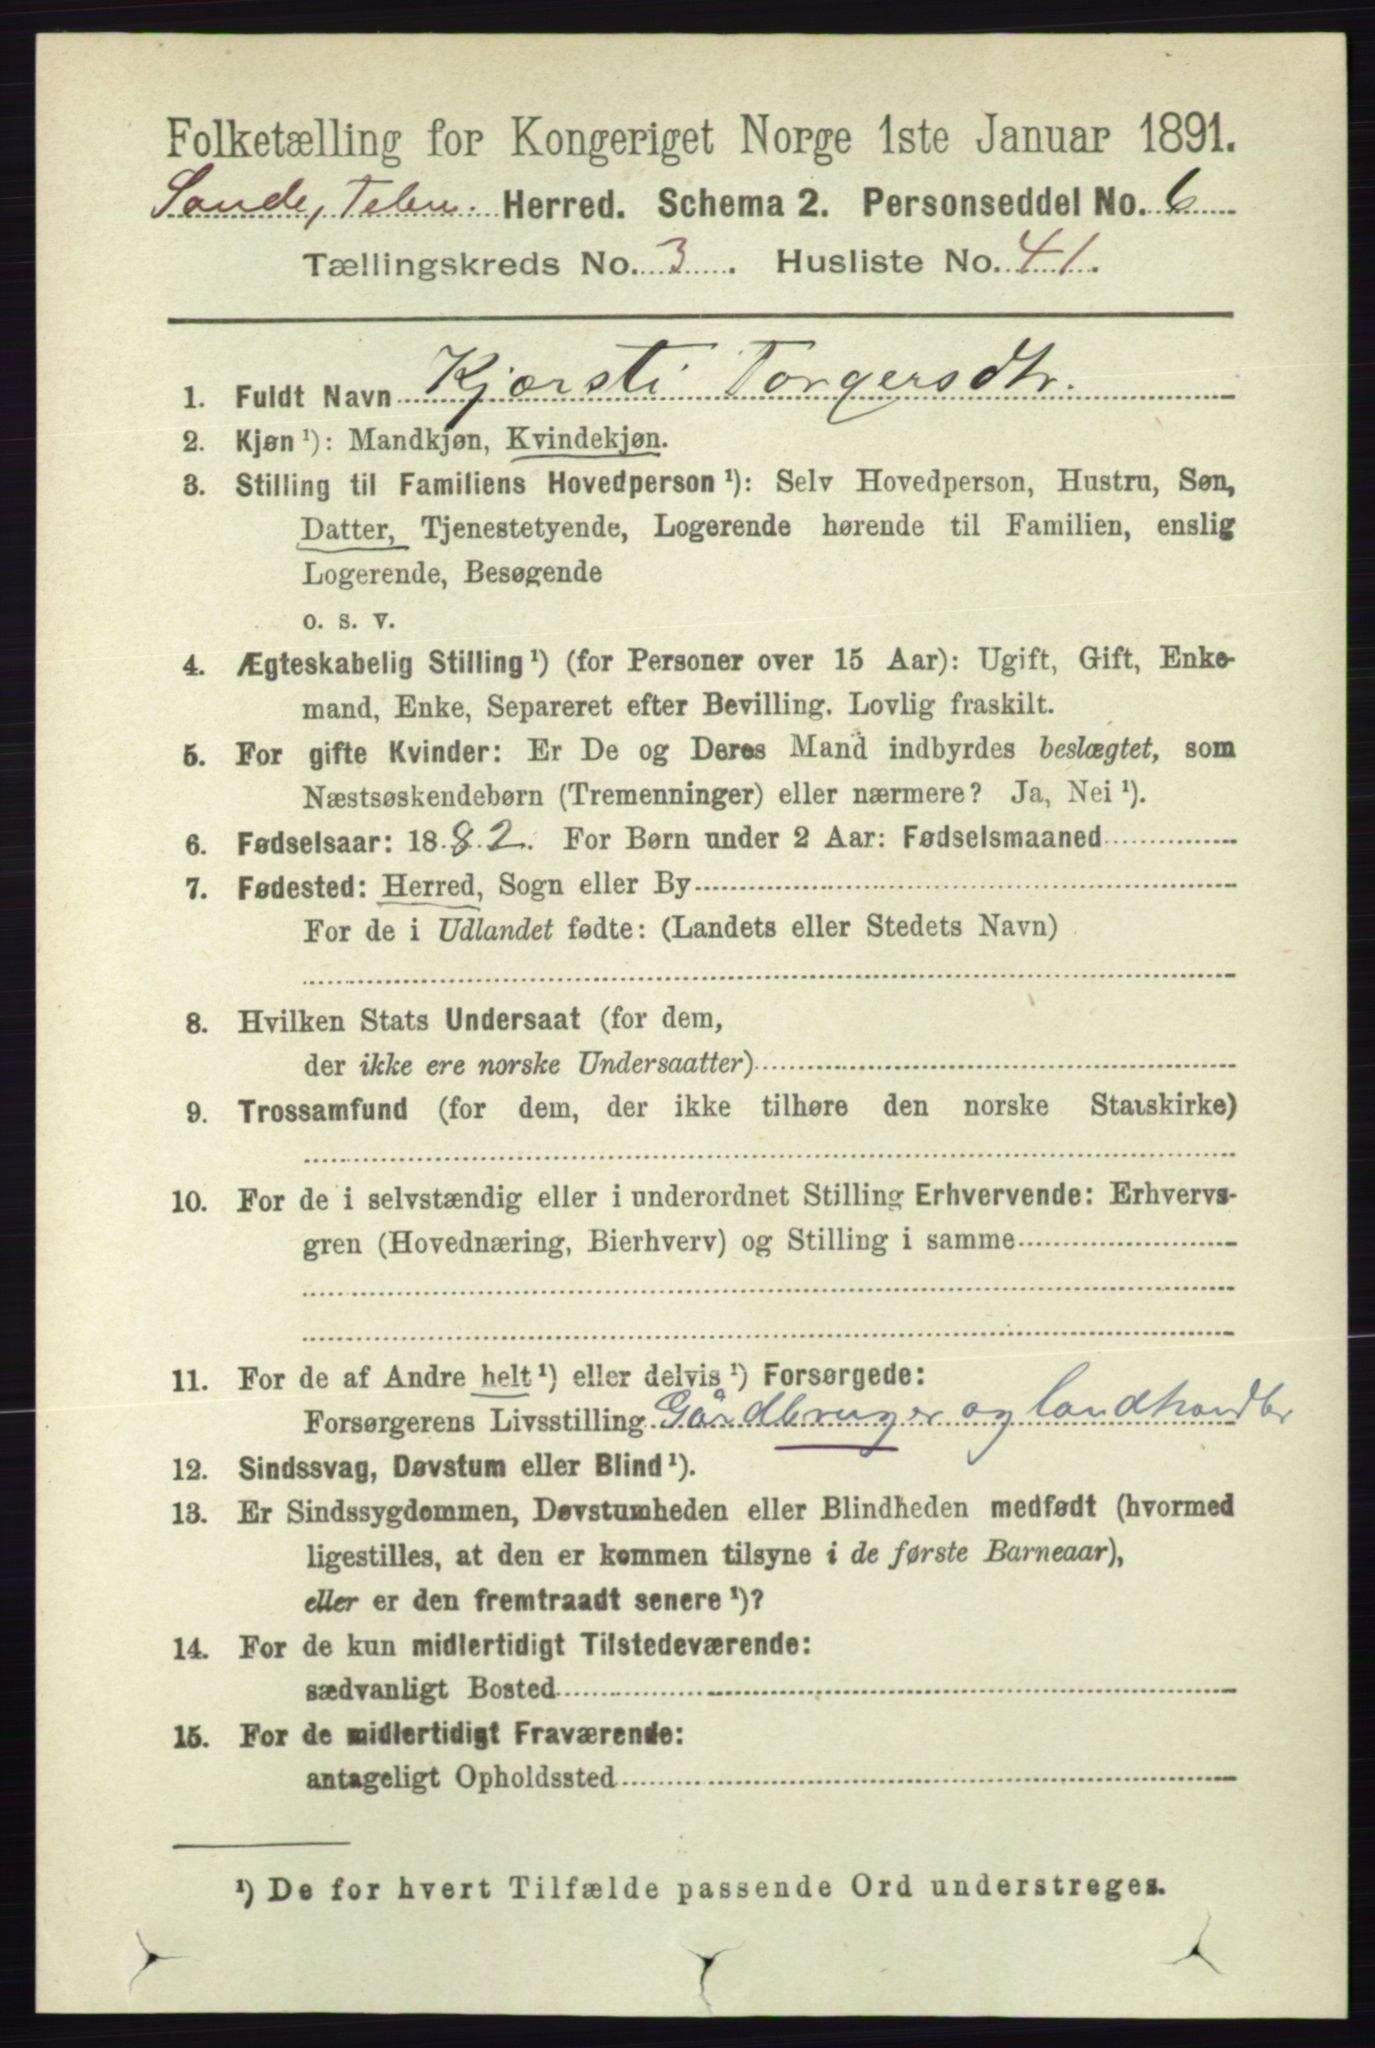 Folketælling for Kongeriget Norge 1ste Januar 1891.
Sande, Telem. Herred. Schema 2. Personseddel No. 6
Tællingskreds No. 3. Husliste No. 41.
1. Fuldt Navn Kjersti Torgersdtr.
2. Kjøn ¹): Mandkjøn, Kvindekjøn.
3. Stilling til Familiens Hovedperson ¹): Selv Hovedperson, Hustru, Søn,
Datter, Tjenestetyende, Logerende hørende til Familien, enslig
Logerende, Besøgende
o. s. v.
4. Ægteskabelig Stilling ¹) (for Personer over 15 Aar): Ugift, Gift, Enke-
mand, Enke, Separeret efter Bevilling. Lovlig fraskilt.
5. For gifte Kvinder: Er De og Deres Mand indbyrdes beslægtet, som
Næstsøskendebørn (Tremenninger) eller nærmere? Ja, Nei ¹).
6. Fødselsaar: 1882. For Børn under 2 Aar: Fødselsmaaned
7. Fødested: Herred, Sogn eller By
For de i Udlandet fødte: (Landets eller Stedets Navn)
8. Hvilken Stats Undersaat (for dem,
der ikke ere norske Undersaatter)
9. Trossamfund (for dem, der ikke tilhøre den norske Statskirke)
10. For de i selvstændig eller i underordnet Stilling Erhvervende: Erhvervs-
gren (Hovednæring, Bierhverv) og Stilling i samme
11. For de af Andre helt ¹) eller delvis ¹) Forsørgede:
Forsørgerens Livsstilling Gårdbruger og landhandler
12. Sindssvag, Døvstum eller Blind ¹).
13. Er Sindssygdommen, Døvstumheden eller Blindheden medfødt (hvormed
ligestilles, at den er kommen tilsyne i de første Barneaar),
eller er den fremtraadt senere ¹)?
14. For de kun midlertidigt Tilstedeværende:
sædvanligt Bosted
15. For de midlertidigt Fraværende:
antageligt Opholdssted
¹) De for hvert Tilfælde passende Ord understreges.